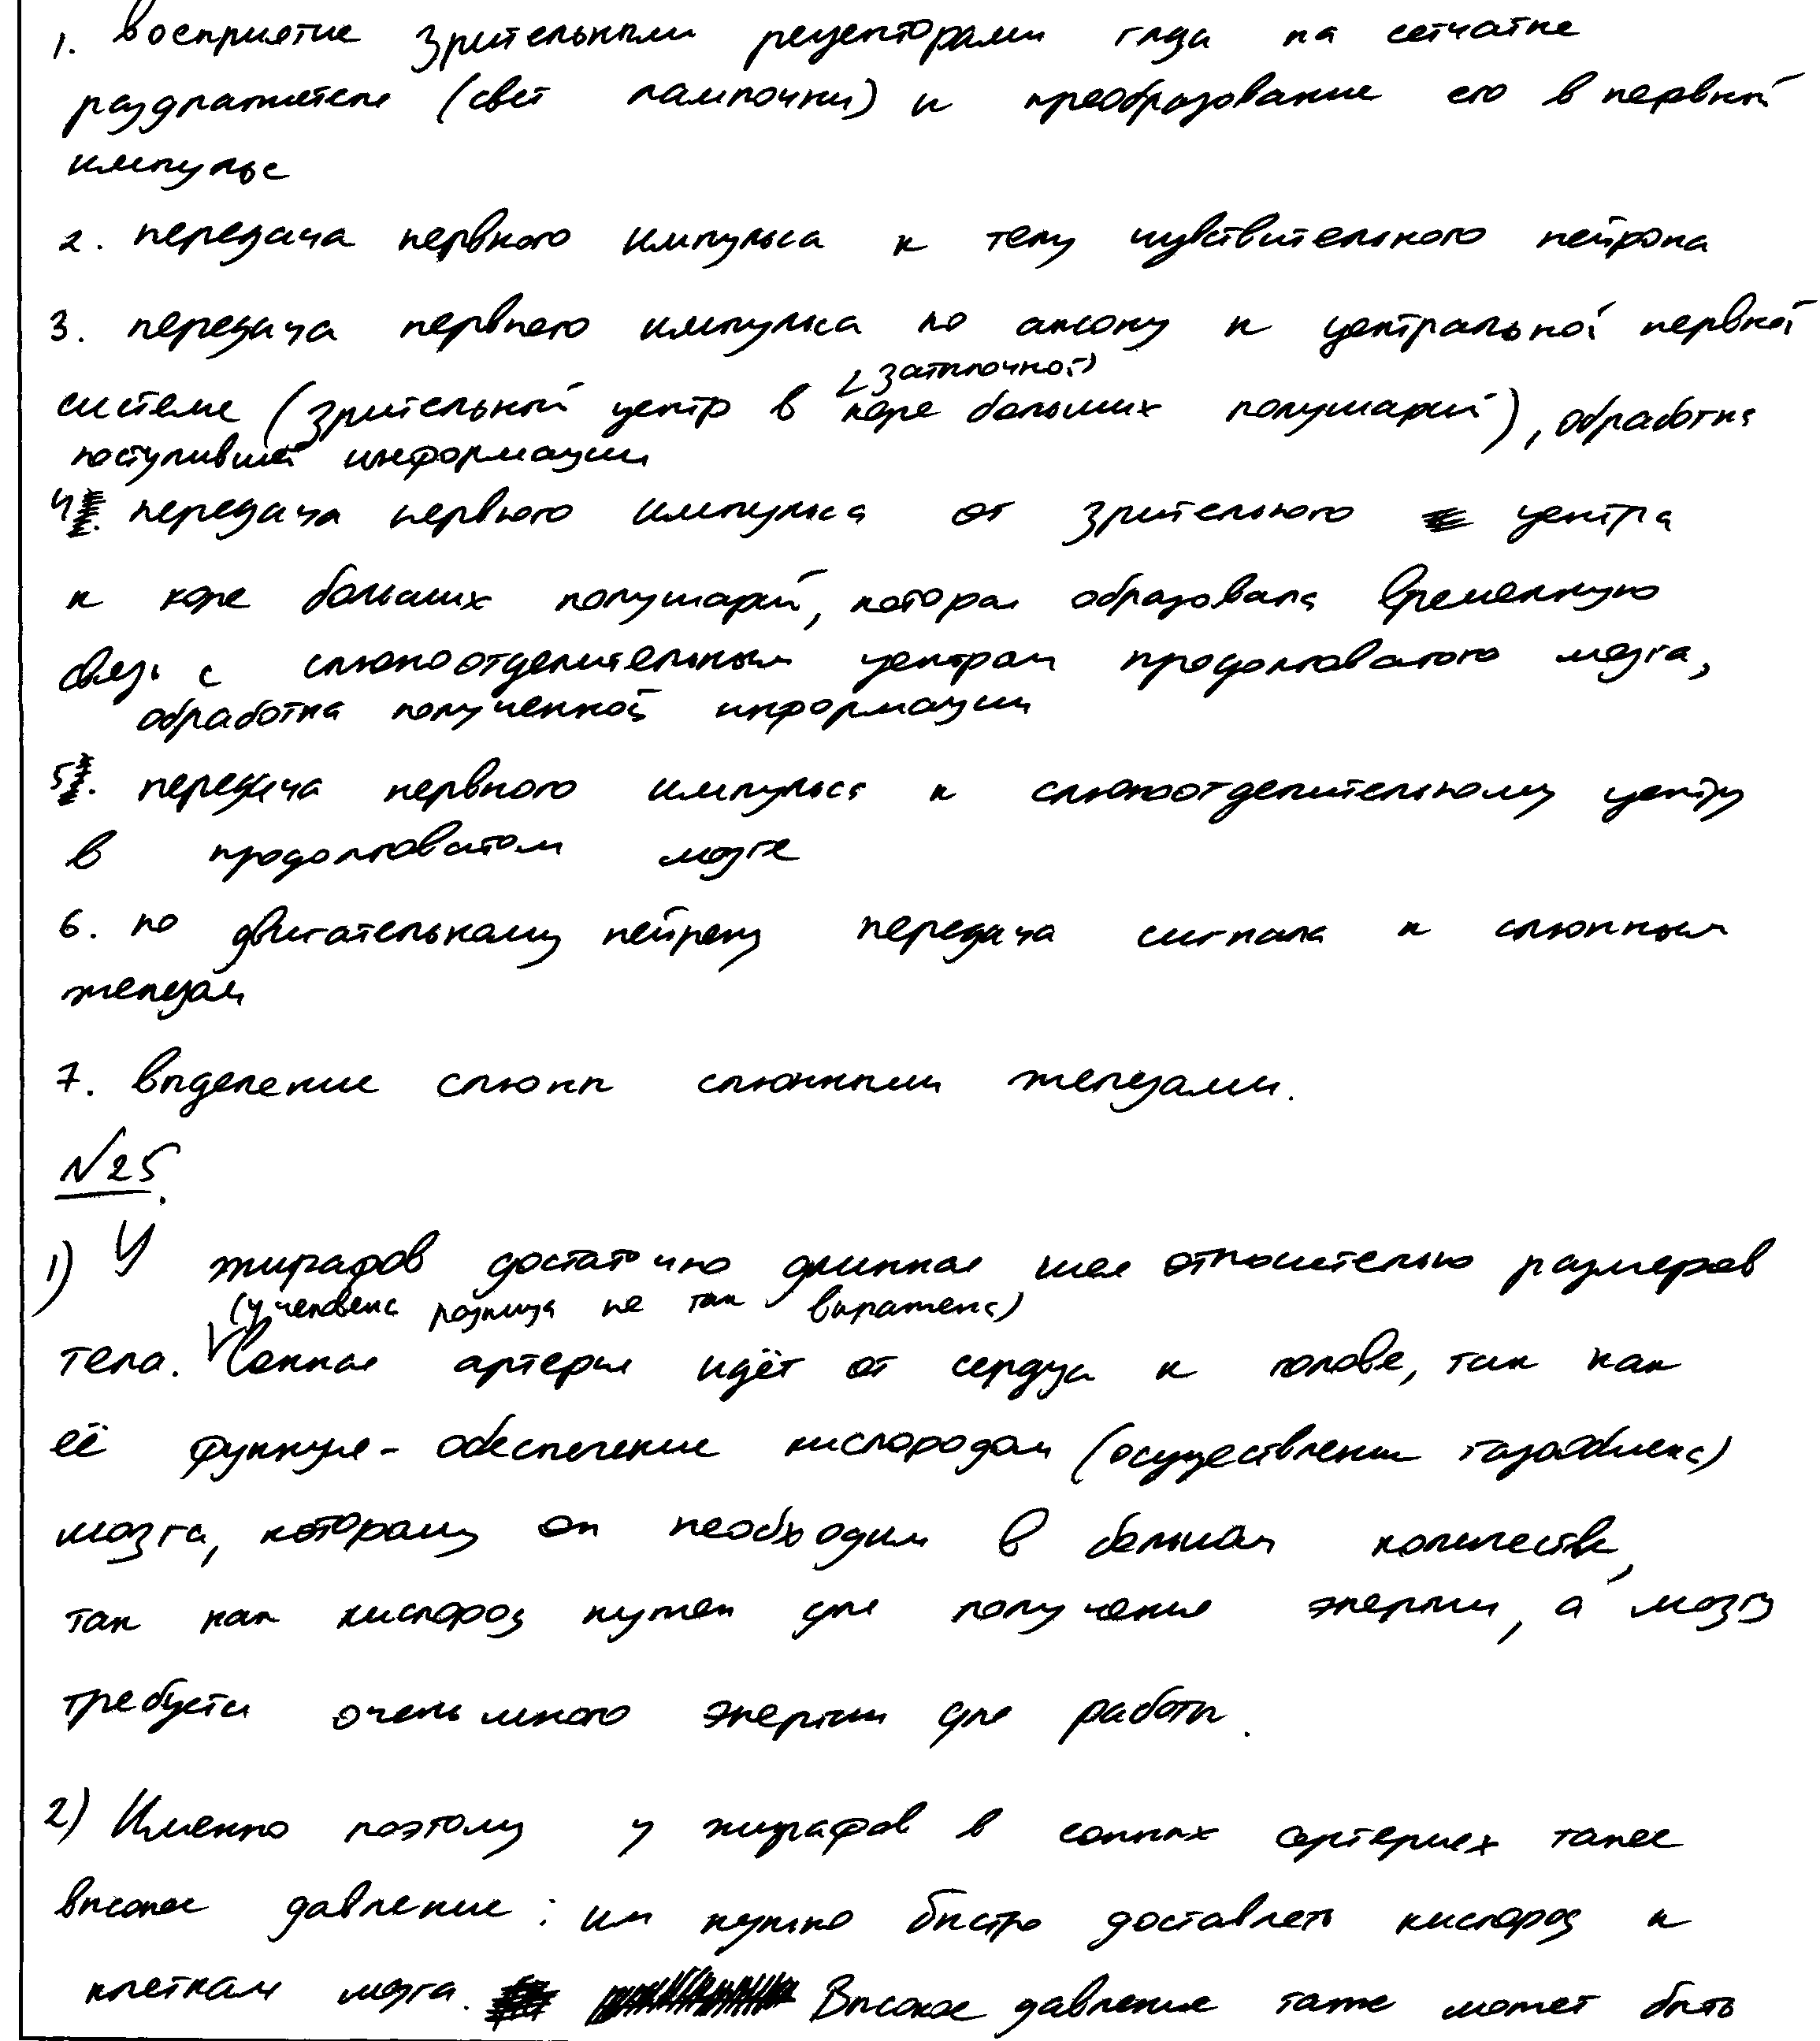 1. восприятие зрительными рецепторами глаза на сетчатке
раздражителя (свет лампочки) и преобразование его в нервный
импульс
2. передача нервного импульса к телу чувствительного нейрона
3. передача нервного импульса по аксону к центральной нервной
(затылочной)
системе (зрительный центр в коре больших полушарий), обработка
поступившей информации
4. передача нервного импульса от зрительного центра
к коре больших полушарий, которая образовала временную
связь с слюноотделительным центром продолговатого мозга,
обработка полученной информации
5. передача нервного импульса к слюноотделительному центру
в продолговатом мозге
6. по двигательному нейрону передача сигнала к слюнным
железам
7. выделение слюны слюнными железами.
№25.
1) У жирафов достаточно длинная шея относительно размеров
(у человека разница не так выражена)
тела. Сонная артерия идёт от сердца к голове, так как
её функция - обеспечение кислородом (осуществление газообмена)
мозга, которому он необходим в большом количестве,
так как кислород нужен для получения энергии, а мозгу
требуется очень много энергии для работы.
2) Именно поэтому у жирафов в сонных артериях такое
высокое давление: им нужно быстро доставлять кислород к
клеткам мозга. Высокое давление также может быть